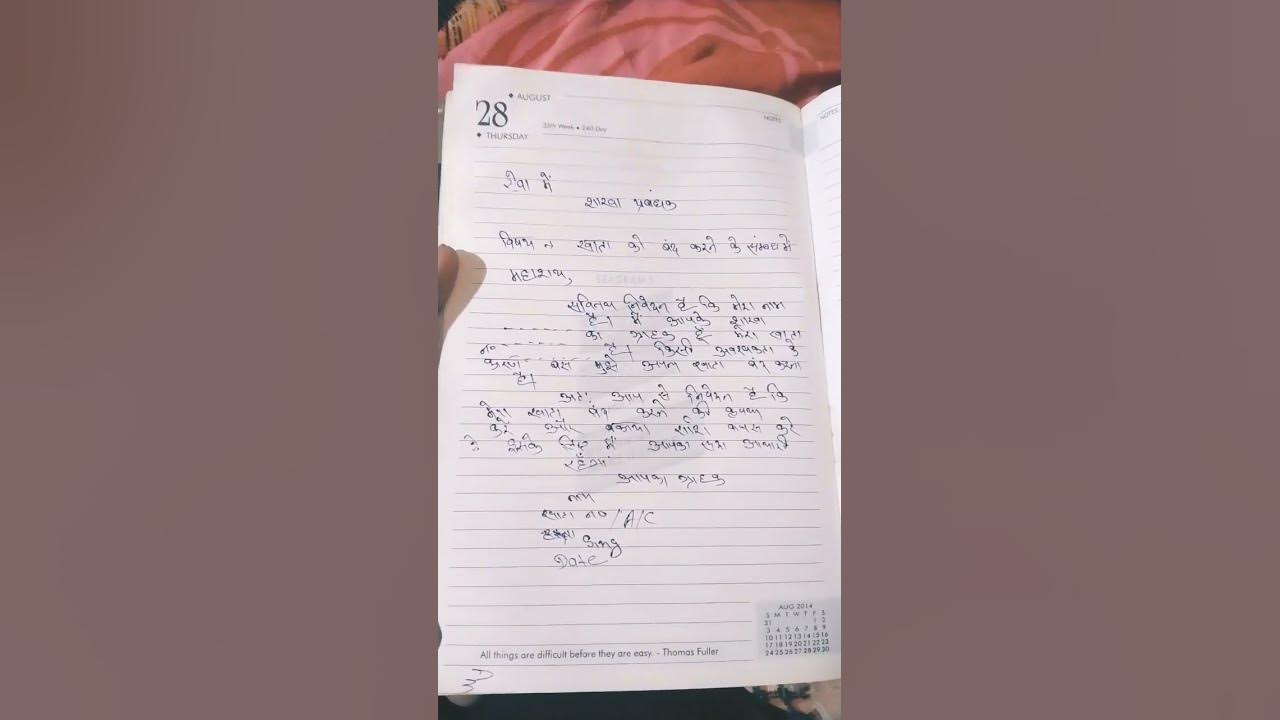 AUGUST
28
THURSDAY
35th Week • 240 Day
NOTES
NOTES
सेवा में
शाखा प्रबंधक
विषय :- खाता को बंद करने के संम्बध मे
महाशय,
सविनय निवेदन है कि मेरा नाम
------- है। मैं आपके शाखा
का ग्राहक हूँ मेरा खाता
न० ------- है। किसी अवश्यकता के
कारण मुझे अपना खाता बंद करना
है।
अतः आप से निवेदन है कि
मेरा खाता बंद करने की कृपया
करें और बकाया राशि वापस करे
इसके लिए मैं आपका सदा आभारी
रहूँगा
आपका ग्राहक
नाम
खाता न० / A/C
Sing
Date
AUG 2014
S M T W T F S
31 1 2
3 4 5 6 7 8 9
10 11 12 13 14 15 16
17 18 19 20 21 22 23
24 25 26 27 28 29 30
All things are difficult before they are easy. - Thomas Fuller